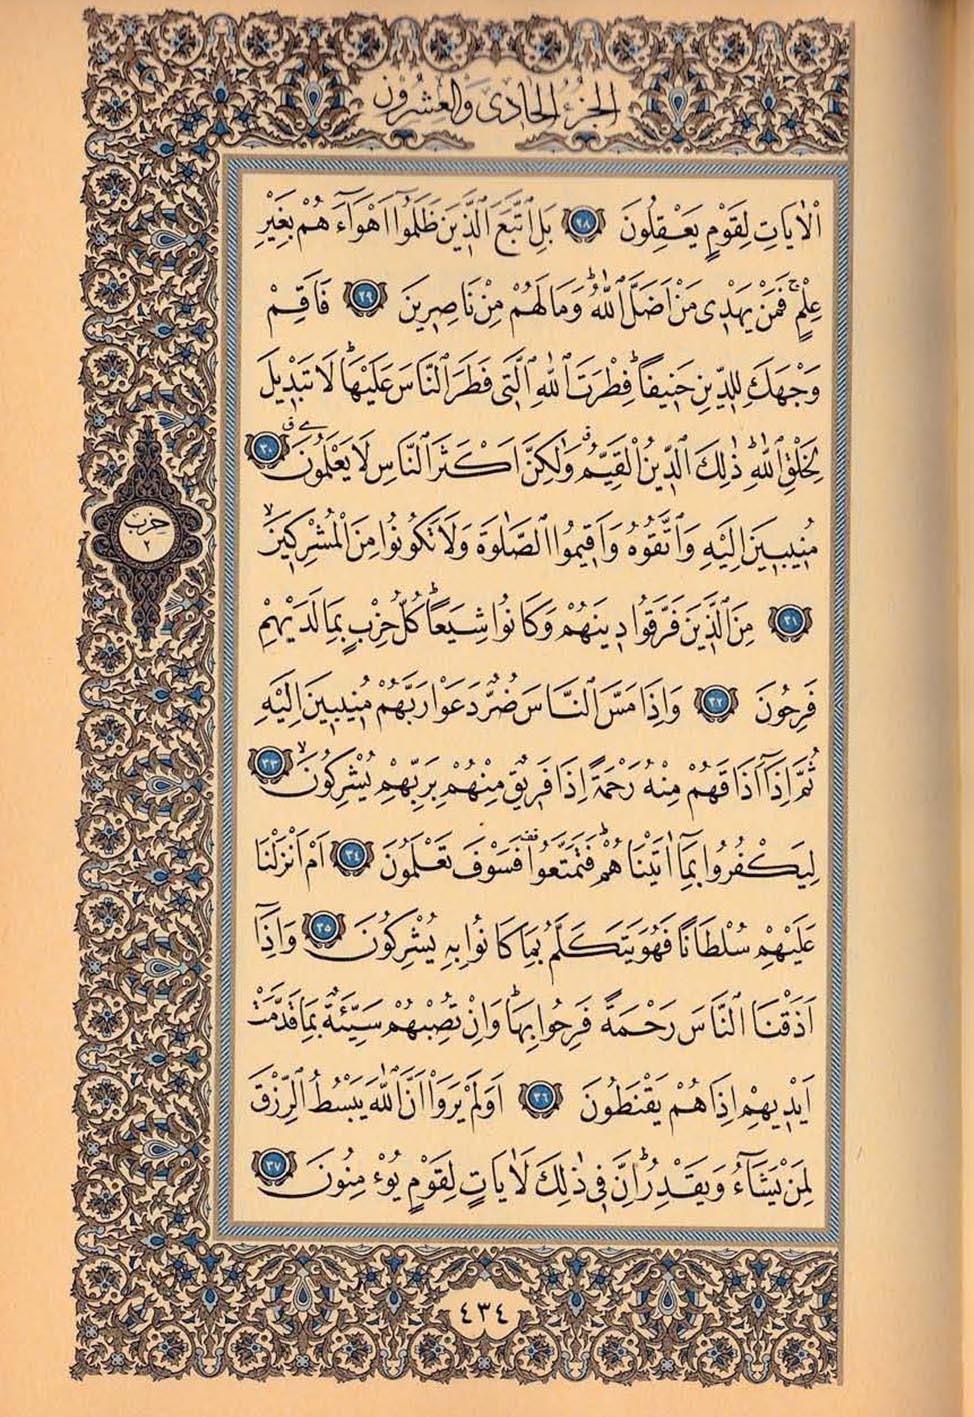 الجزء الحادى والعشرون
الْاٰيَاتِ لِقَوْمٍ يَعْقِلُونَ ﴿٢٨﴾ بَلِ اتَّبَعَ الَّذ۪ينَ ظَلَمُٓوا اَهْوَٓاءَهُمْ بِغَيْرِ
عِلْمٍۚ فَمَنْ يَهْد۪ي مَنْ اَضَلَّ اللّٰهُۜ وَمَا لَهُمْ مِنْ نَاصِر۪ينَ ﴿٢٩﴾ فَاَقِمْ
وَجْهَكَ لِلدّ۪ينِ حَن۪يفًاۜ فِطْرَتَ اللّٰهِ الَّت۪ي فَطَرَ النَّاسَ عَلَيْهَاۜ لَا تَبْد۪يلَ
لِخَلْقِ اللّٰهِۜ ذٰلِكَ الدّ۪ينُ الْقَيِّمُۗ وَلٰكِنَّ اَكْثَرَ النَّاسِ لَا يَعْلَمُونَ ﴿٣٠﴾
مُن۪يب۪ينَ اِلَيْهِ وَاتَّقُوهُ وَاَق۪يمُوا الصَّلٰوةَ وَلَا تَكُونُوا مِنَ الْمُشْرِك۪ينَۙ
﴿٣١﴾ مِنَ الَّذ۪ينَ فَرَّقُوا د۪ينَهُمْ وَكَانُوا شِيَعًاۜ كُلُّ حِزْبٍ بِمَا لَدَيْهِمْ
فَرِحُونَ ﴿٣٢﴾ وَاِذَا مَسَّ النَّاسَ ضُرٌّ دَعَوْا رَبَّهُمْ مُن۪يب۪ينَ اِلَيْهِ
ثُمَّ اِذَٓا اَذَاقَهُمْ مِنْهُ رَحْمَةً اِذَا فَر۪يقٌ مِنْهُمْ بِرَبِّهِمْ يُشْرِكُونَۙ ﴿٣٣﴾
لِيَكْفُرُوا بِمَٓا اٰتَيْنَاهُمْۜ فَتَمَتَّعُوا۠ فَسَوْفَ تَعْلَمُونَ ﴿٣٤﴾ اَمْ اَنْزَلْنَا
عَلَيْهِمْ سُلْطَانًا فَهُوَ يَتَكَلَّمُ بِمَا كَانُوا بِه۪ يُشْرِكُونَ ﴿٣٥﴾ وَاِذَٓا
اَذَقْنَا النَّاسَ رَحْمَةً فَرِحُوا بِهَاۜ وَاِنْ تُصِبْهُمْ سَيِّئَةٌ بِمَا قَدَّمَتْ
اَيْد۪يهِمْ اِذَا هُمْ يَقْنَطُونَ ﴿٣٦﴾ اَوَلَمْ يَرَوْا اَنَّ اللّٰهَ يَبْسُطُ الرِّزْقَ
لِمَنْ يَشَٓاءُ وَيَقْدِرُۜ اِنَّ ف۪ي ذٰلِكَ لَاٰيَاتٍ لِقَوْمٍ يُؤْمِنُونَ ﴿٣٧﴾
حزب
٢
٤٣٤